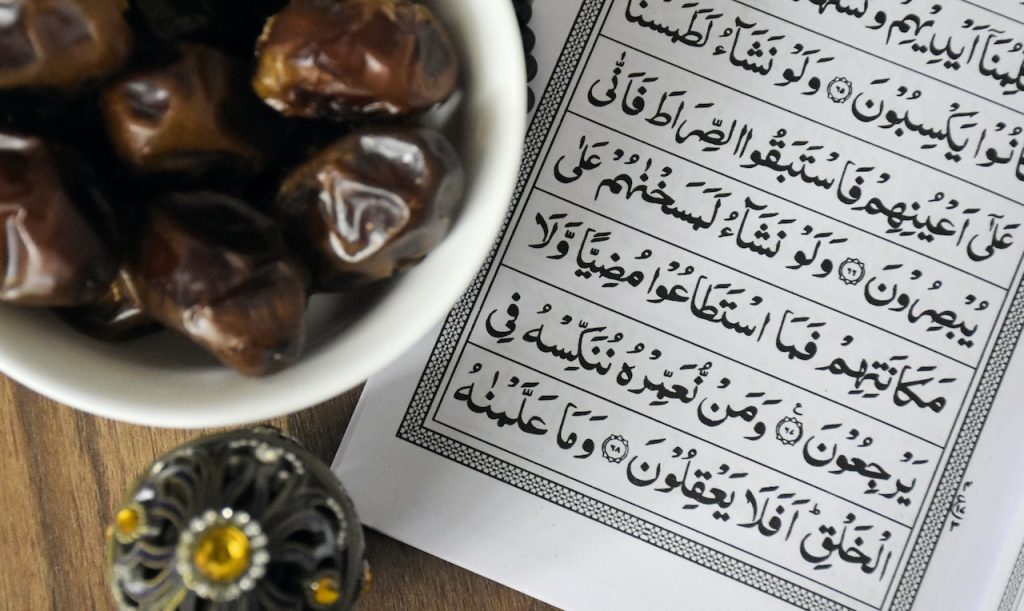 اَيْدِيْهِمْ
كَانُوْا يَكْسِبُوْنَ ۝۶۵ وَلَوْ نَشَآءُ لَطَمَسْنَا
عَلٰٓى اَعْيُنِهِمْ فَاسْتَبَقُوا الصِّرَاطَ فَاَنّٰى
يُبْصِرُوْنَ ۝۶۶ وَلَوْ نَشَآءُ لَمَسَخْنٰهُمْ عَلٰى
مَكَانَتِهِمْ فَمَا اسْتَطَاعُوْا مُضِيًّا وَّلَا
يَرْجِعُوْنَ ۝۶۷ وَمَنْ نُّعَمِّرْهُ نُنَكِّسْهُ فِى
الْخَلْقِ ؕ اَفَلَا يَعْقِلُوْنَ ۝۶۸ وَمَا عَلَّمْنٰهُ